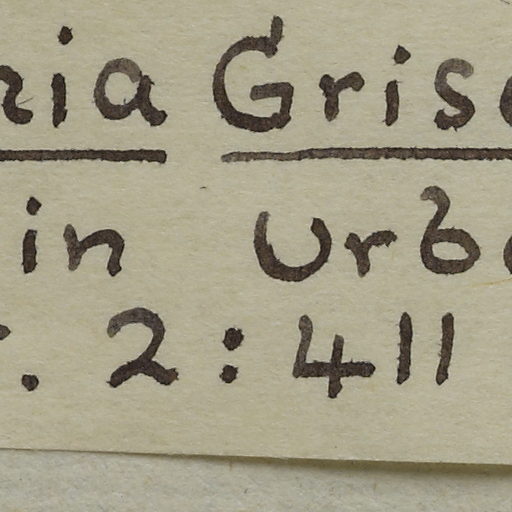 ria Grise
in Urbo
. 2:411